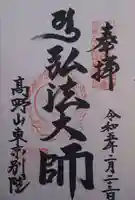 奉拝
弘法大師
令和五年二月二十三日
高野山東京別院